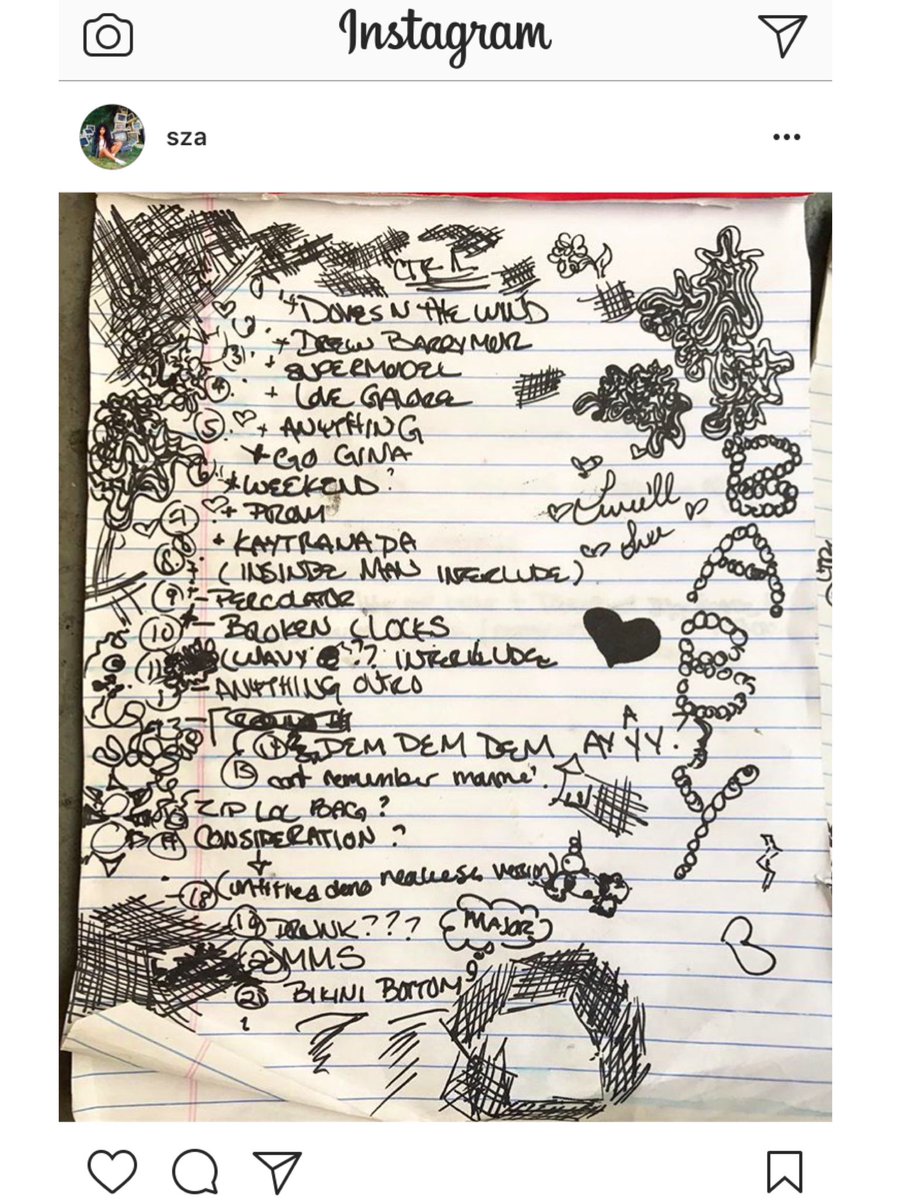 Instagram
sza
CTRL
DOVES N THE WIND
(3) + DREW BARRYMOR
+ SUPERMODEL
+ LOVE GALORE
5 + ANYTHING
GO GINA
WEEKEND?
+ PROM
+ KAYTRANADA
(INSINDE MAN INTERLUDE)
9 PERCOLATOR
10 BROKEN CLOCKS
11 (WAVY ?? INTERLUDE
ANYTHING OUTRO
DEM DEM DEM AYYY?
A
cant remember
ZIP LOC BAG?
CONSIDERATION?
18 (untitled demo version)
19 DRUNK???
MAJOR
MMS
21 BIKINI BOTTOM
?
love
BABY
CTR